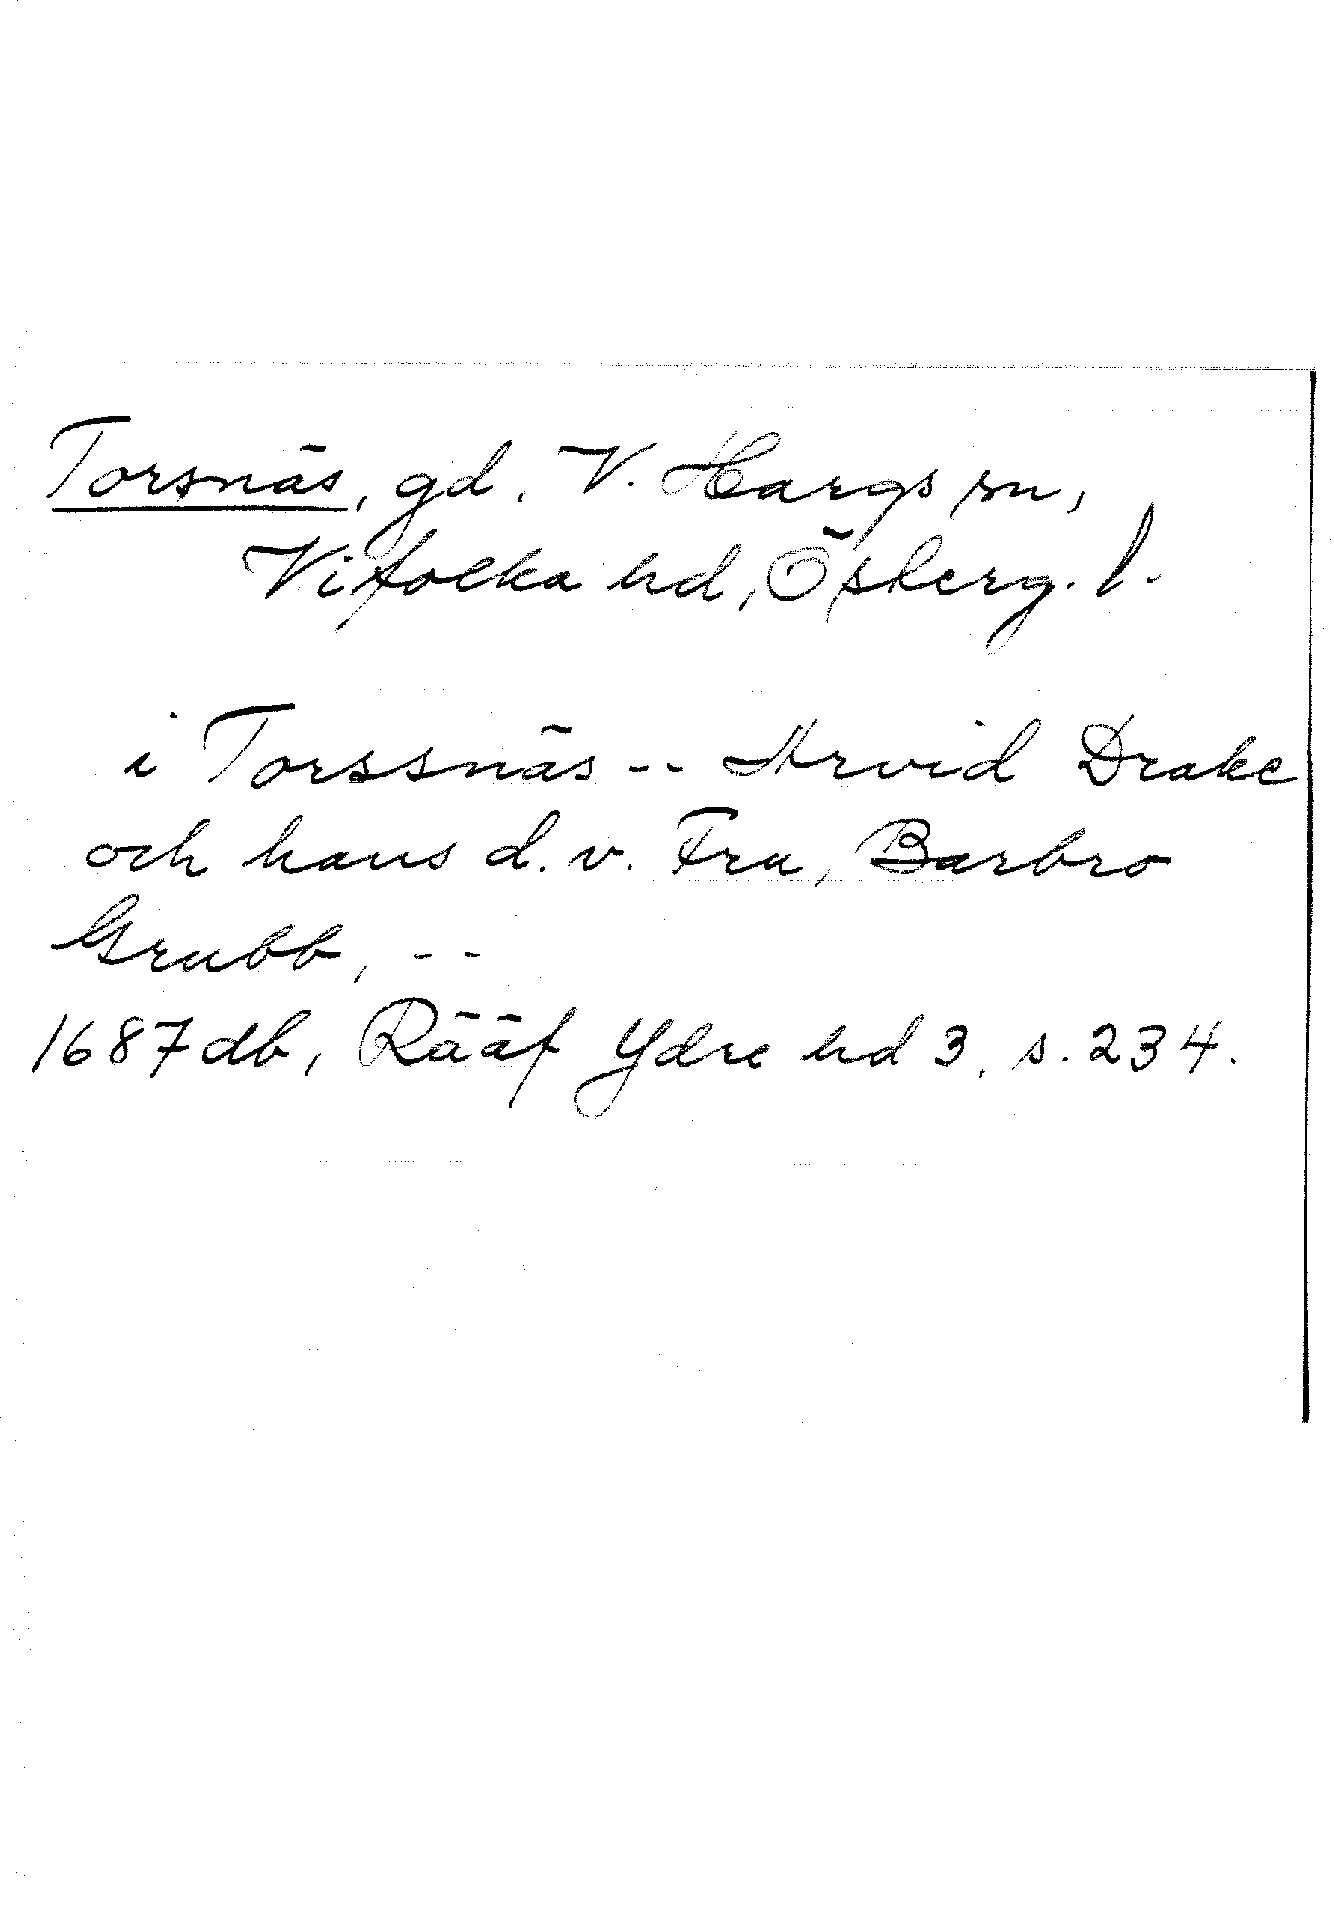 Torsnäs, gd. V. Hargs sn,
Vifolka hd, Österg. l.
i Torssnäs -- Arvid Drake
och hans d. v. Fru, Barbro
Grubb, --
1687 db, Rääf Ydre hd 3, s. 234.